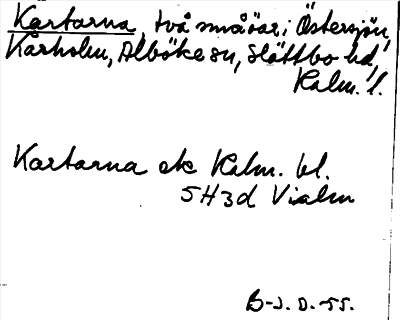 Kartarna, två småöar i Östersjön,
Karholm, Alböke sn, Slättbo hd,
Kalm. l.
Kartarna ek Kalm. bl.
5H3d Vialm
B-J. D. -55.